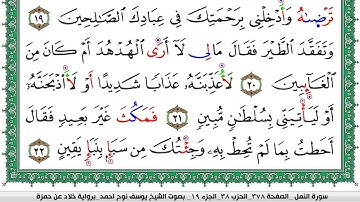 تَرْضَىٰهُ وَأَدْخِلْنِي بِرَحْمَتِكَ فِي عِبَادِكَ الصَّـٰلِحِينَ ١٩
وَتَفَقَّدَ الطَّيْرَ فَقَالَ مَالِي لَا أَرَى الْهُدْهُدَ أَمْ كَانَ مِنَ
الْغَائِبِينَ ٢٠ لَأُعَذِّبَنَّهُ عَذَابًا شَدِيدًا أَوْ لَأَاْذْبَحَنَّهُ
أَوْ لَيَأْتِيَنِّي بِسُلْطَـٰنٍ مُبِينٍ ٢١ فَمَكُثَ غَيْرَ بَعِيدٍ فَقَالَ
أَحَطتُ بِمَا لَمْ تُحِطْ بِهِ وَجِئْتُكَ مِنْ سَبَإٍ بِنَبَإٍ يَقِينٍ ٢٢
سورة النمل _ الصفحة ٣٧٨_ الحزب ٣٨_ الجزء ١٩ _ بصوت الشيخ يوسف نوح احمد_ برواية خلاد عن حمزة